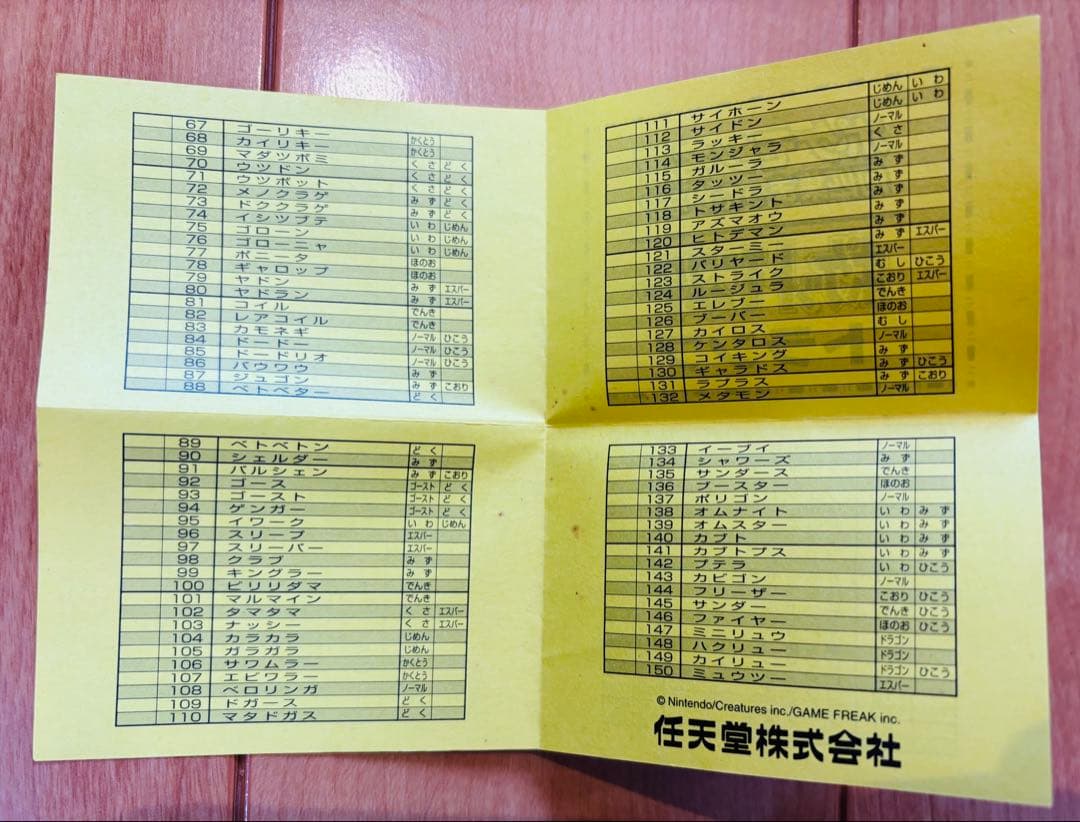 67 ゴーリキー かくとう
68 カイリキー かくとう
69 マダツボミ くさ どく
70 ウツドン くさ どく
71 ウツボット くさ どく
72 メノクラゲ みず どく
73 ドククラゲ みず どく
74 イシツブテ いわ じめん
75 ゴローン いわ じめん
76 ゴローニャ いわ じめん
77 ポニータ ほのお
78 ギャロップ ほのお
79 ヤドン みず エスパー
80 ヤドラン みず エスパー
81 コイル でんき
82 レアコイル でんき
83 カモネギ ノーマル ひこう
84 ドードー ノーマル ひこう
85 ドードリオ ノーマル ひこう
86 パウワウ みず
87 ジュゴン みず こおり
88 ベトベター どく
89 ベトベトン どく
90 シェルダー みず
91 パルシェン みず こおり
92 ゴース ゴースト どく
93 ゴースト ゴースト どく
94 ゲンガー ゴースト どく
95 イワーク いわ じめん
96 スリープ エスパー
97 スリーパー エスパー
98 クラブ みず
99 キングラー みず
100 ビリリダマ でんき
101 マルマイン でんき
102 タマタマ くさ エスパー
103 ナッシー くさ エスパー
104 カラカラ じめん
105 ガラガラ じめん
106 サワムラー かくとう
107 エビワラー かくとう
108 ベロリンガ ノーマル
109 ドガース どく
110 マタドガス どく
111 サイホーン じめん いわ
112 サイドン じめん いわ
113 ラッキー ノーマル
114 モンジャラ くさ
115 ガルーラ ノーマル
116 タッツー みず
117 シードラ みず
118 トサキント みず
119 アズマオウ みず
120 ヒトデマン みず
121 スターミー みず エスパー
122 バリヤード エスパー
123 ストライク むし ひこう
124 ルージュラ こおり エスパー
125 エレブー でんき
126 ブーバー ほのお
127 カイロス むし
128 ケンタロス ノーマル
129 コイキング みず
130 ギャラドス みず ひこう
131 ラプラス みず こおり
132 メタモン ノーマル
133 イーブイ ノーマル
134 シャワーズ みず
135 サンダース でんき
136 ブースター ほのお
137 ポリゴン ノーマル
138 オムナイト いわ みず
139 オムスター いわ みず
140 カブト いわ みず
141 カブトプス いわ みず
142 プテラ いわ ひこう
143 カビゴン ノーマル
144 フリーザー こおり ひこう
145 サンダー でんき ひこう
146 ファイヤー ほのお ひこう
147 ミニリュウ ドラゴン
148 ハクリュー ドラゴン
149 カイリュー ドラゴン ひこう
150 ミュウツー エスパー
© Nintendo/Creatures inc./GAME FREAK inc.
任天堂株式会社